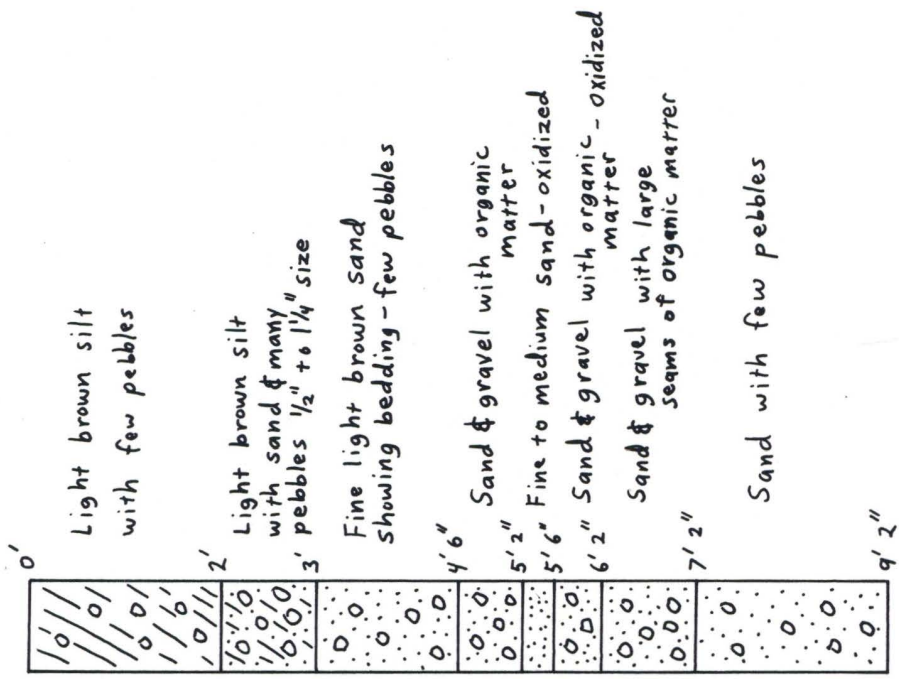 0'
Light brown silt
with few pebbles
2'
Light brown silt
with sand & many
pebbles 1/2" to 1 1/4" size
3'
Fine light brown sand
showing bedding - few pebbles
4' 6"
Sand & gravel with organic
matter
5' 2"
Fine to medium sand - oxidized
5' 6"
Sand & gravel with organic - oxidized
matter
6' 2"
Sand & gravel with large
seams of organic matter
7' 2"
Sand with few pebbles
9' 2"